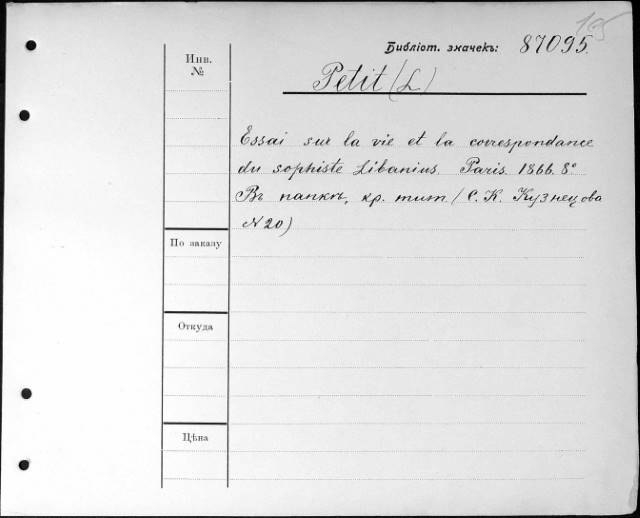 15
Библіот. значекъ: 87095.
Инв. №
Petit (L)
Essai sur la vie et la correspondance
du sophiste Libanius. Paris. 1866. 8°
Въ папкѣ, кр. тит. (С. К. Кузнецова
N 20)
По заказу
Откуда
Цѣна